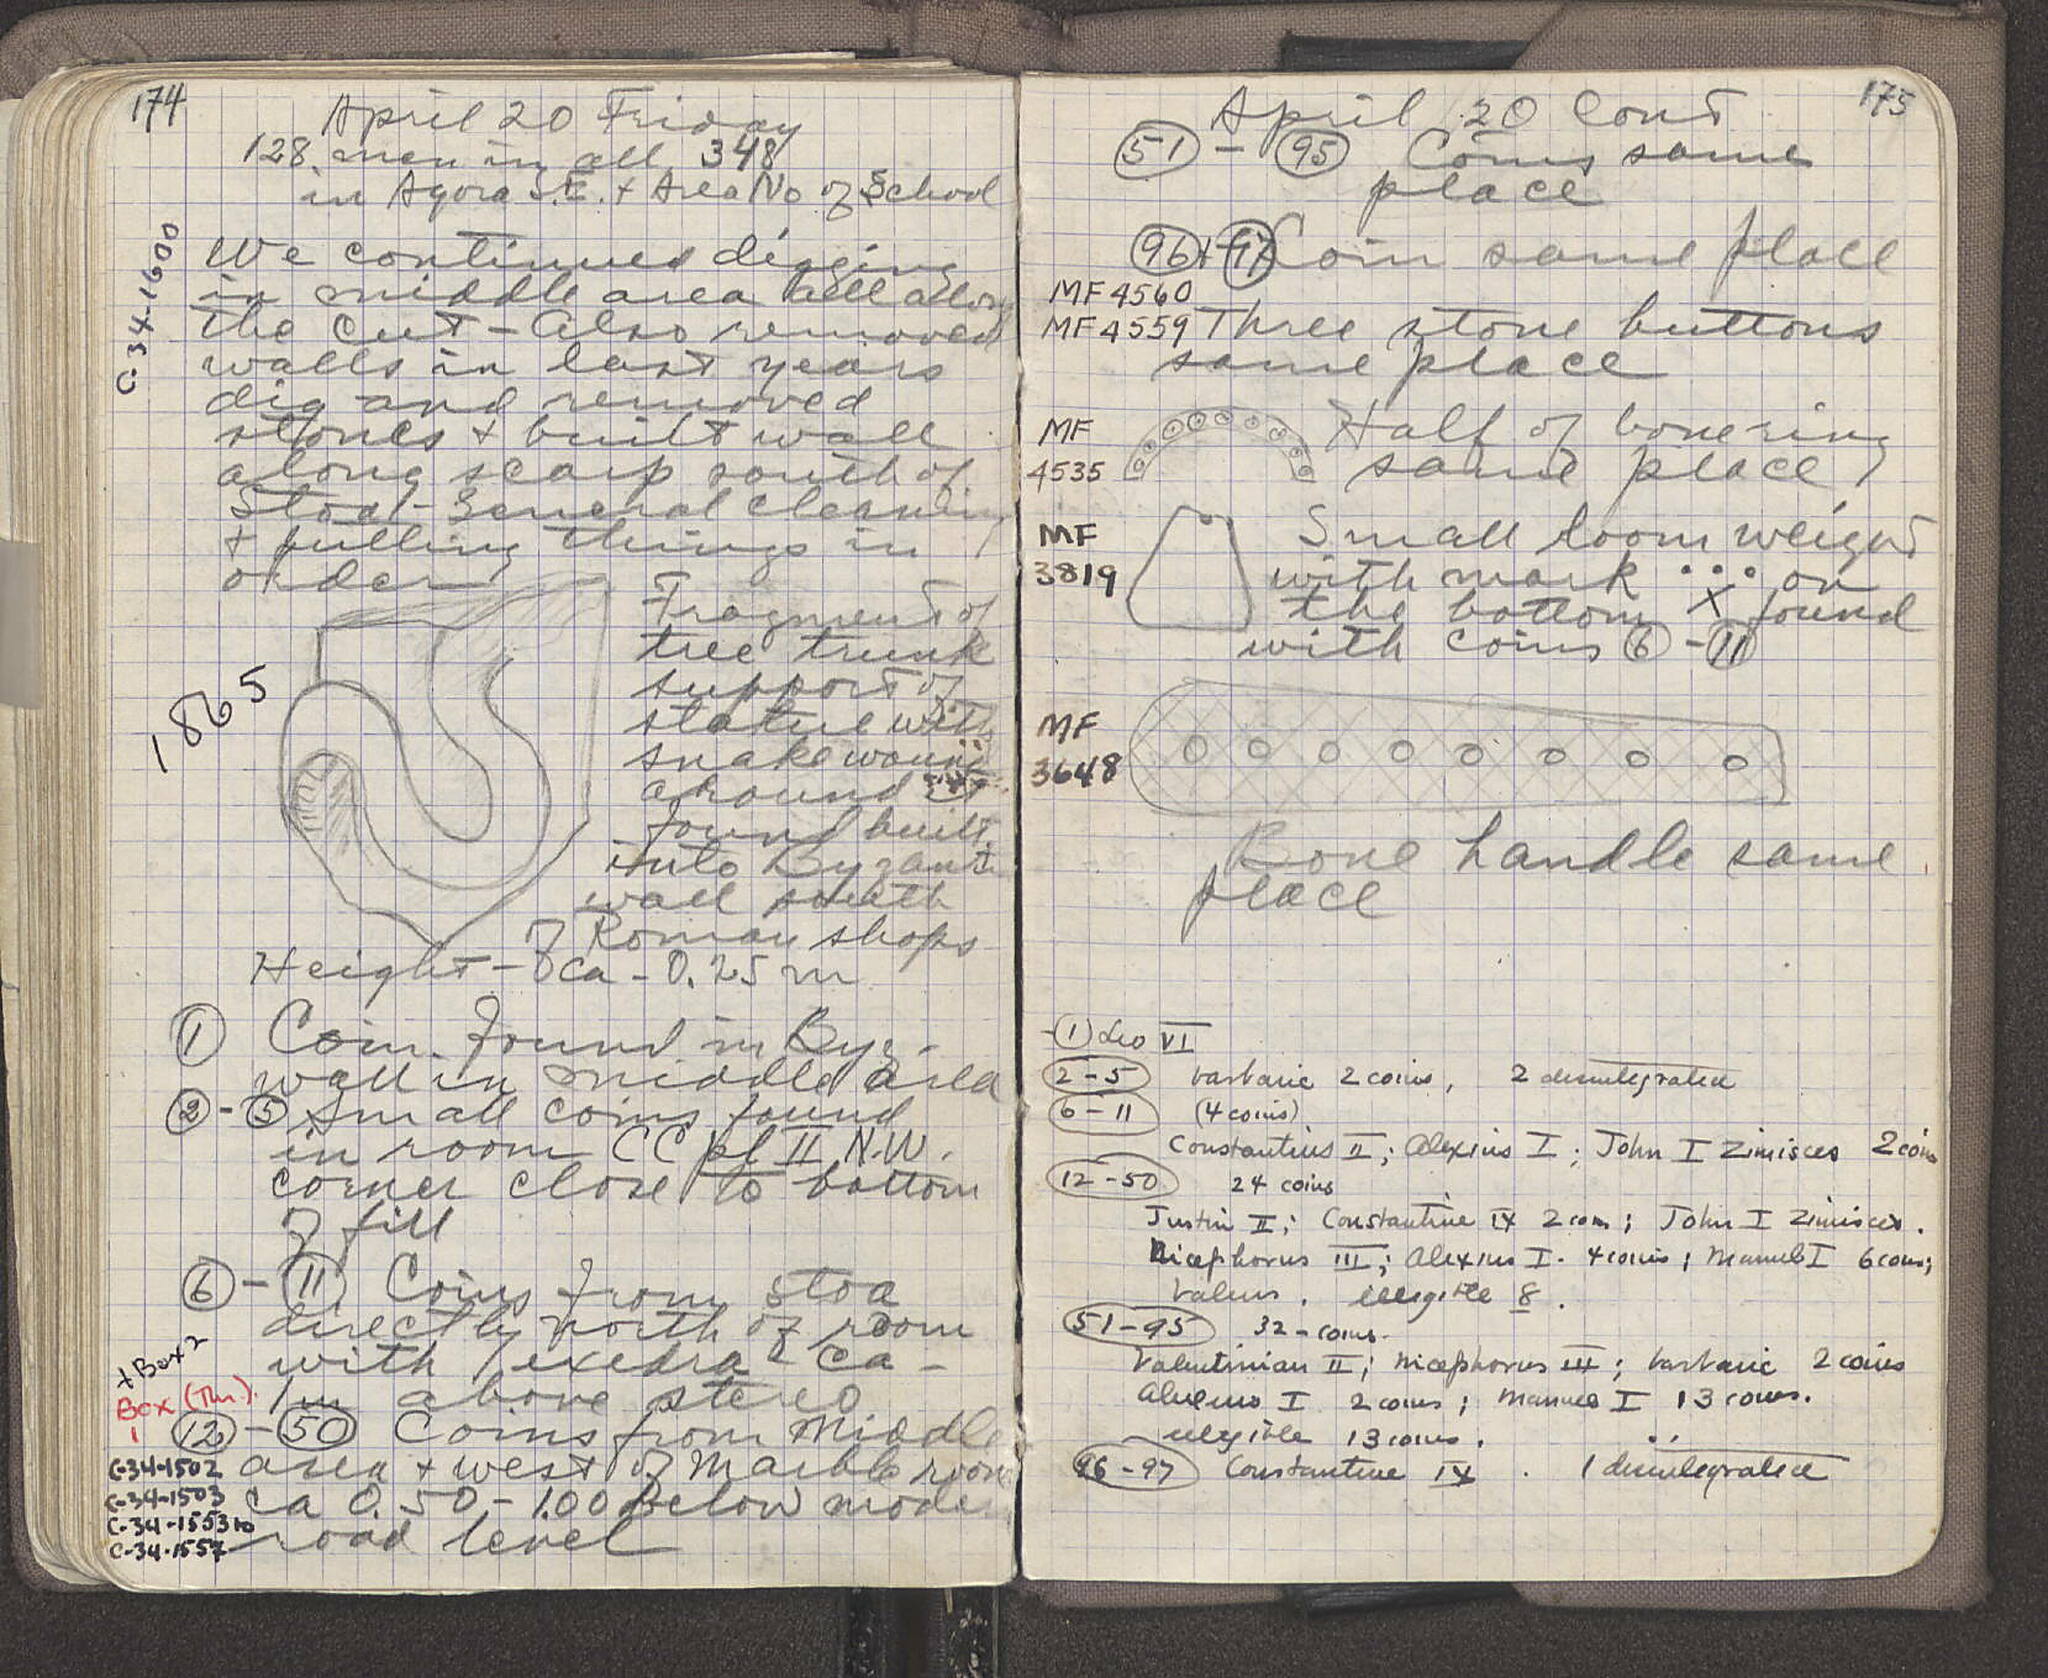 174
April 20 Friday
128 men in all 348
in Agora S.E. + Area No of School
C-34-1600
We continued digging
in middle area all along
the cut - Also removed
walls in last years
dig and removed
stones + built wall
along scarp south of
Stoa - General cleaning
+ putting things in
order
1865
Fragment of
tree trunk
support of
statue with
snake wound
around it
found built
into Byzant
wall south
of Roman shops
Height - ca - 0.25 m
1 Coin found in Byz -
wall in middle area
2 - 5 small coins found
in room CC pl II N.W.
corner close to bottom
of fill
6 - 11 Coins from stoa
directly north of room
with exedra ca -
1m above stereo
+ Box 2
Box (Thr).
1
12 - 50 Coins from Middle
area + west of Marble room
ca 0.50 - 1.00 below mode
road level
C-34-1502
C-34-1503
C-34-1553
C-34-1557
175
April 20 Cont
51 - 95 Coins same
place
96 + 97 Coin same place
MF 4560
MF 4559 Three stone buttons
same place
MF
4535
Half of bone ring
same place
MF
3819
Small loom weight
with mark ... on
the bottom X found
with coins 6 - 11
MF
3648
Bone handle same
place
1 Leo VI
2-5 barbaric 2 coins, 2 disintegrated
6-11 (4 coins)
Constantius II; Alexius I; John I Zimisces 2 coins
12-50 24 coins
Justin II; Constantine IX 2 coins; John I Zimisces.
Nicephorus III; Alexius I. 4 coins; Manuel I 6 coins;
Valens. illegible 8.
51-95 32 - coins.
Valentinian II; Nicephorus III; barbaric 2 coins
Alexius I 2 coins; Manuel I 13 coins.
illegible 13 coins.
96-97 Constantine IX. 1 disintegrated